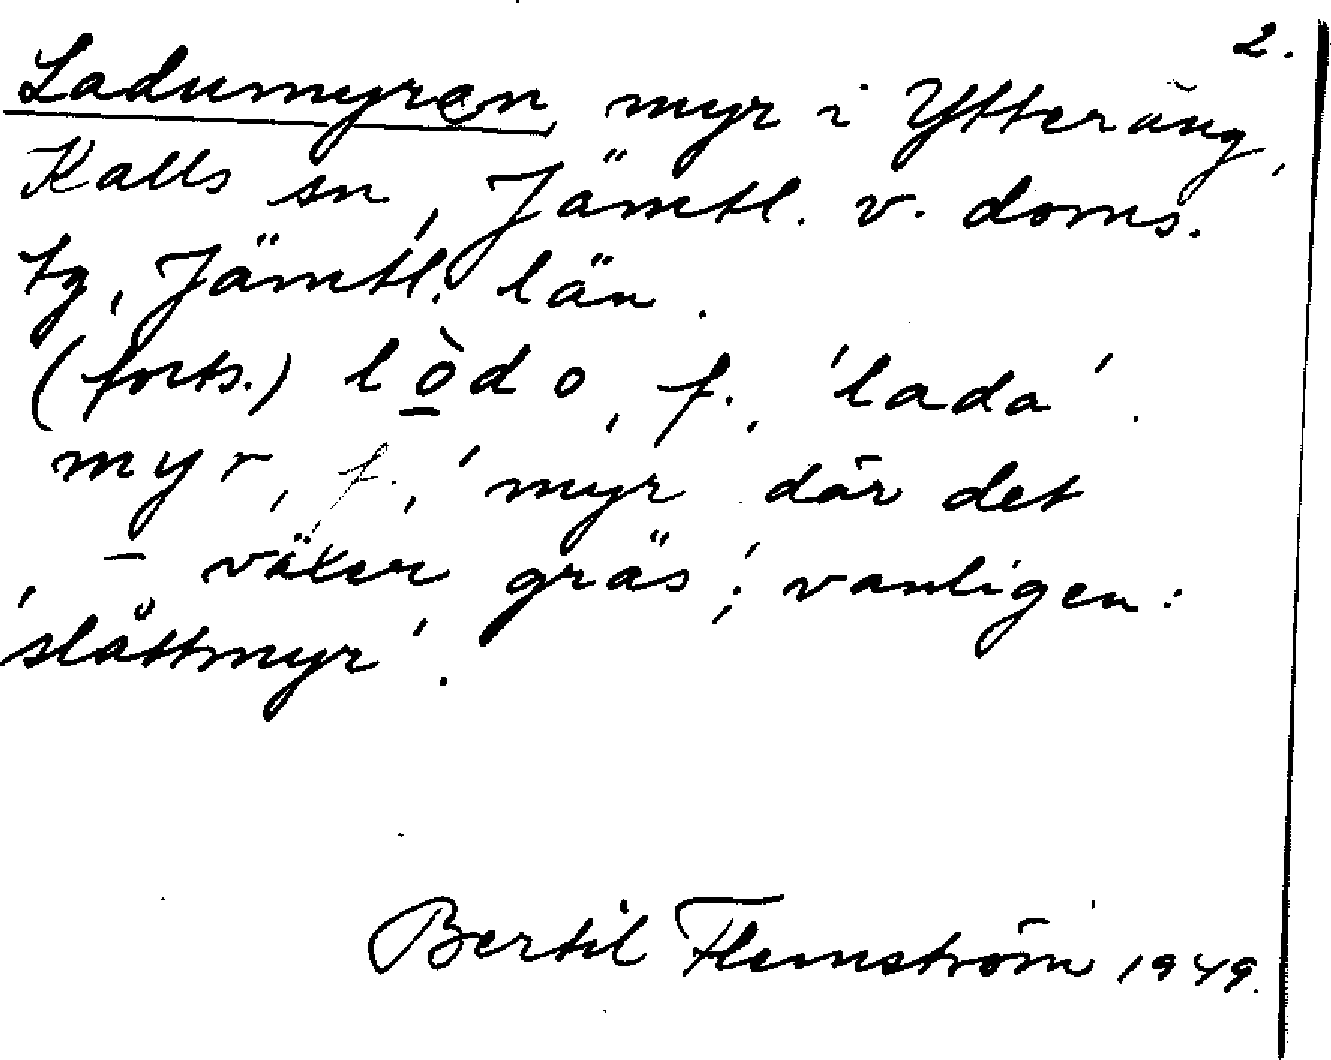 2.
Ladumyren, myr i Ytteräng,
Kalls sn, Jämtl. v. doms.
tg, Jämtl. län.
(forts.) lo̱̍do, f., 'lada'.
myr, f., 'myr där det
växer gräs'; vanligen:
'slåttmyr'.
Bertil Flemström 1949.